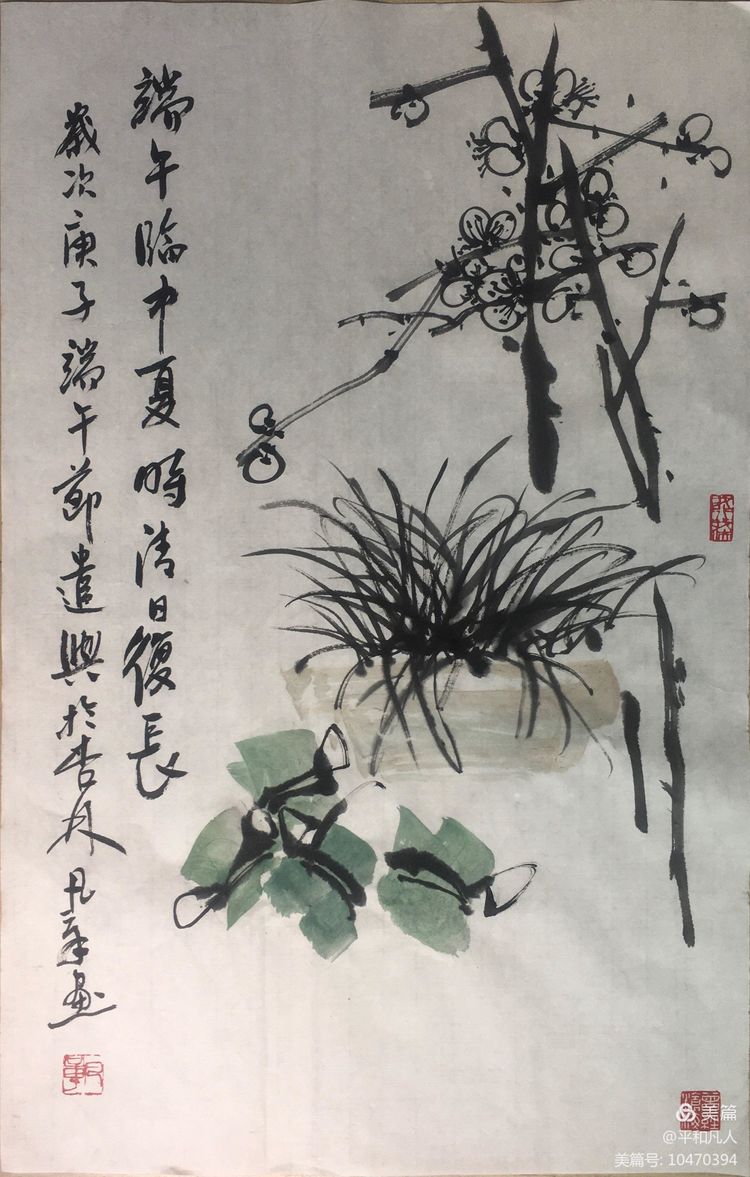 端午临中夏时清日復長
歲次庚子端午節遣興於杏林凡年畫
美篇
@平和凡人
美篇号: 10470394